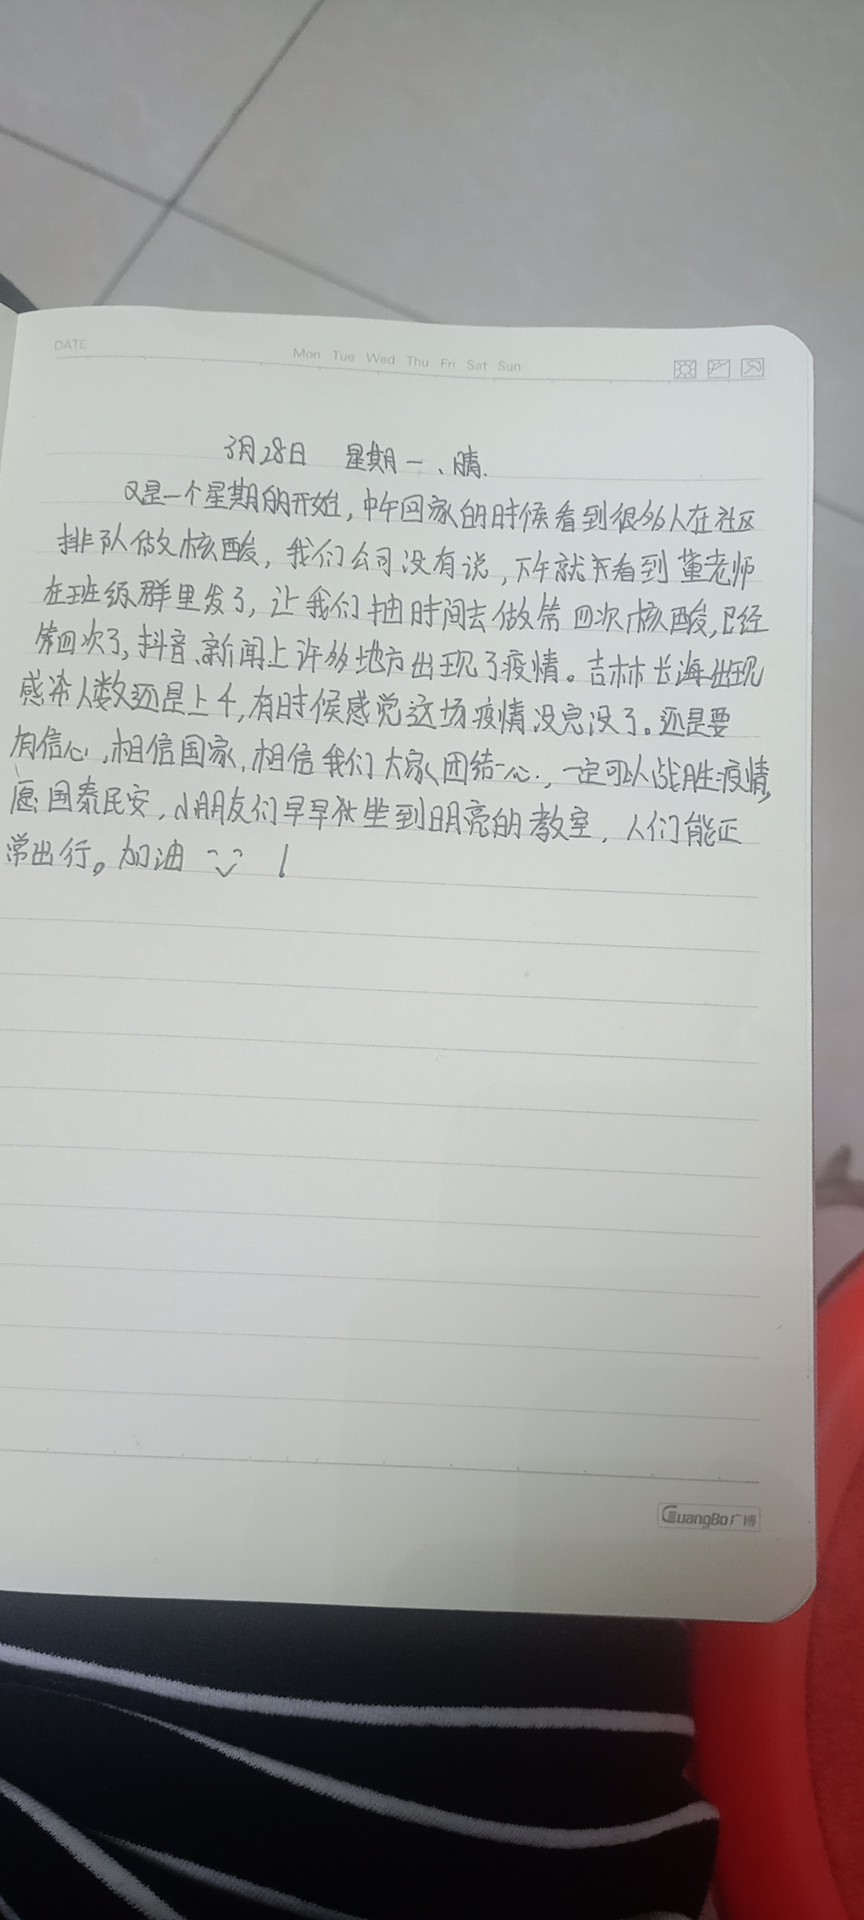 DATE
Mon Tue Wed Thu Fri Sat Sun
3月28日 星期一、晴.
又是一个星期的开始,中午回家的时候看到很多人在社区
排队做核酸,我们公司没有说,下午就看到董老师
在班级群里发了,让我们抽时间去做第四次核酸,已经
第四次了,抖音、新闻上许多地方出现了疫情。吉林长海出现
感染人数还是上千,有时候感觉这场疫情没完没了。还是要
有信心,相信国家,相信我们大家团结一心,一定可以战胜疫情,
愿国泰民安,小朋友们早早坐到明亮的教室,人们能正
常出行。加油 !
GuangBo广博